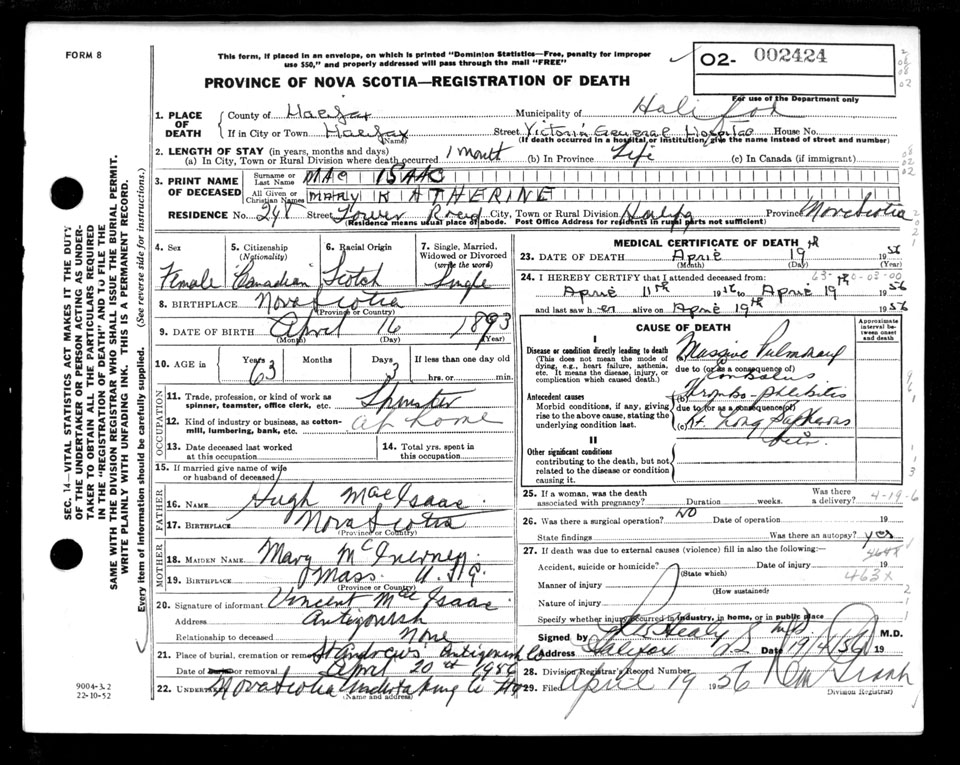 FORM 8
This form, if placed in an envelope, on which is printed "Dominion Statistics—Free, penalty for improper
use $50," and properly addressed will pass through the mail "FREE"
PROVINCE OF NOVA SCOTIA—REGISTRATION OF DEATH
02- 002424
For use of the Department only
SEC. 14—VITAL STATISTICS ACT MAKES IT THE DUTY
OF THE UNDERTAKER OR PERSON ACTING AS UNDER-
TAKER TO OBTAIN ALL THE PARTICULARS REQUIRED
IN THE "REGISTRATION OF DEATH" AND TO FILE THE
SAME WITH THE DIVISION REGISTRAR WHO SHALL ISSUE THE BURIAL PERMIT.
WRITE PLAINLY WITH UNFADING INK. THIS IS A PERMANENT RECORD.
Every item of information should be carefully supplied. (See reverse side for instructions.)
1. PLACE OF DEATH
County of Halifax Municipality of Halifax
If in City or Town Halifax Street Victoria General Hospital House No.
(Name) (If death occurred in a hospital or institution, give the name instead of street and number)
2. LENGTH OF STAY (in years, months and days)
(a) In City, Town or Rural Division where death occurred 1 Month (b) In Province Life (c) In Canada (if immigrant)
3. PRINT NAME OF DECEASED
Surname or Last Name MAC ISAAC
All Given or Christian Names MARY KATHERINE
RESIDENCE No. 248 Street Tower Road City, Town or Rural Division Halifax Province Nova Scotia
(Residence means usual place of abode. Post Office Address for residents in rural parts not sufficient)
4. Sex Female
5. Citizenship (Nationality) Canadian
6. Racial Origin Scotch
7. Single, Married, Widowed or Divorced (write the word) Single
8. BIRTHPLACE Nova Scotia
(Province or Country)
9. DATE OF BIRTH April 16 1893
(Month) (Day) (Year)
10. AGE in Years 63 Months Days 3 If less than one day old hrs. or min.
OCCUPATION
11. Trade, profession, or kind of work as spinner, teamster, office clerk, etc. Spinster
12. Kind of industry or business, as cotton-mill, lumbering, bank, etc. at home
13. Date deceased last worked at this occupation
14. Total yrs. spent in this occupation
15. If married give name of wife or husband of deceased
FATHER
16. NAME Hugh MacIsaac
17. BIRTHPLACE Nova Scotia
(Province or Country)
MOTHER
18. MAIDEN NAME Mary McInerney
19. BIRTHPLACE Mass. U.S.A.
(Province or Country)
20. Signature of informant Vincent MacIsaac
Address Antigonish
Relationship to deceased None
21. Place of burial, cremation or removal St Andrews Antigonish Co
Date of burial or removal April 20th 1956
22. UNDERTAKER Nova Scotia Undertaking Co
(Name and address)
9004-3.2
22-10-52
MEDICAL CERTIFICATE OF DEATH
23. DATE OF DEATH April 19th 1956
(Month) (Day) (Year)
63- 0-03-00
24. I HEREBY CERTIFY that I attended deceased from:
April 11th 1956 to April 19th 1956
and last saw her alive on April 19th 1956
CAUSE OF DEATH
Approximate interval between onset and death
I
Disease or condition directly leading to death
(This does not mean the mode of dying, e.g., heart failure, asthenia, etc. It means the disease, injury, or complication which caused death.)
Massive Pulmonary
due to (or as a consequence of)
Embolus
Antecedent causes
Morbid conditions, if any, giving rise to the above cause, stating the underlying condition last.
Thrombo-phlebitis
due to (or as a consequence of)
Rt. Long Saphenous
Vein
II
Other significant conditions
contributing to the death, but not related to the disease or condition causing it.
25. If a woman, was the death associated with pregnancy? Duration weeks. Was there a delivery? 4-19-6
26. Was there a surgical operation? NO Date of operation 19
State findings Was there an autopsy? yes
27. If death was due to external causes (violence) fill in also the following: 464X
Accident, suicide or homicide? Date of injury 19
(State which) 463X
Manner of injury
(How sustained)
Nature of injury
Specify whether injury occurred in industry, in home, or in public place
Signed by Healy M.D.
Address Halifax N.S. Date 19/4/56 19
28. Division Registrar's Record Number
29. Filed April 19 1956
Division Registrar)